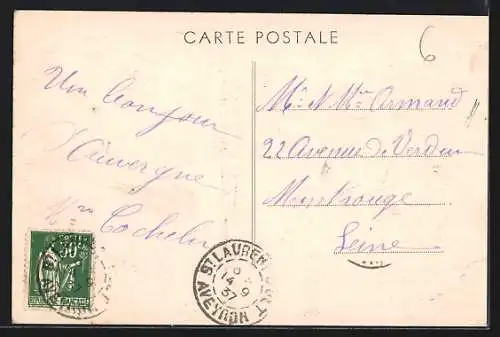 CARTE POSTALE
6
Un bonjour
d'Auvergne
Mme Cochelin
Mr & Mme Armand
22 Avenue de Verdun
Montrouge
Seine
ST LAURENT
14 9
37
AVEYRON
POSTES